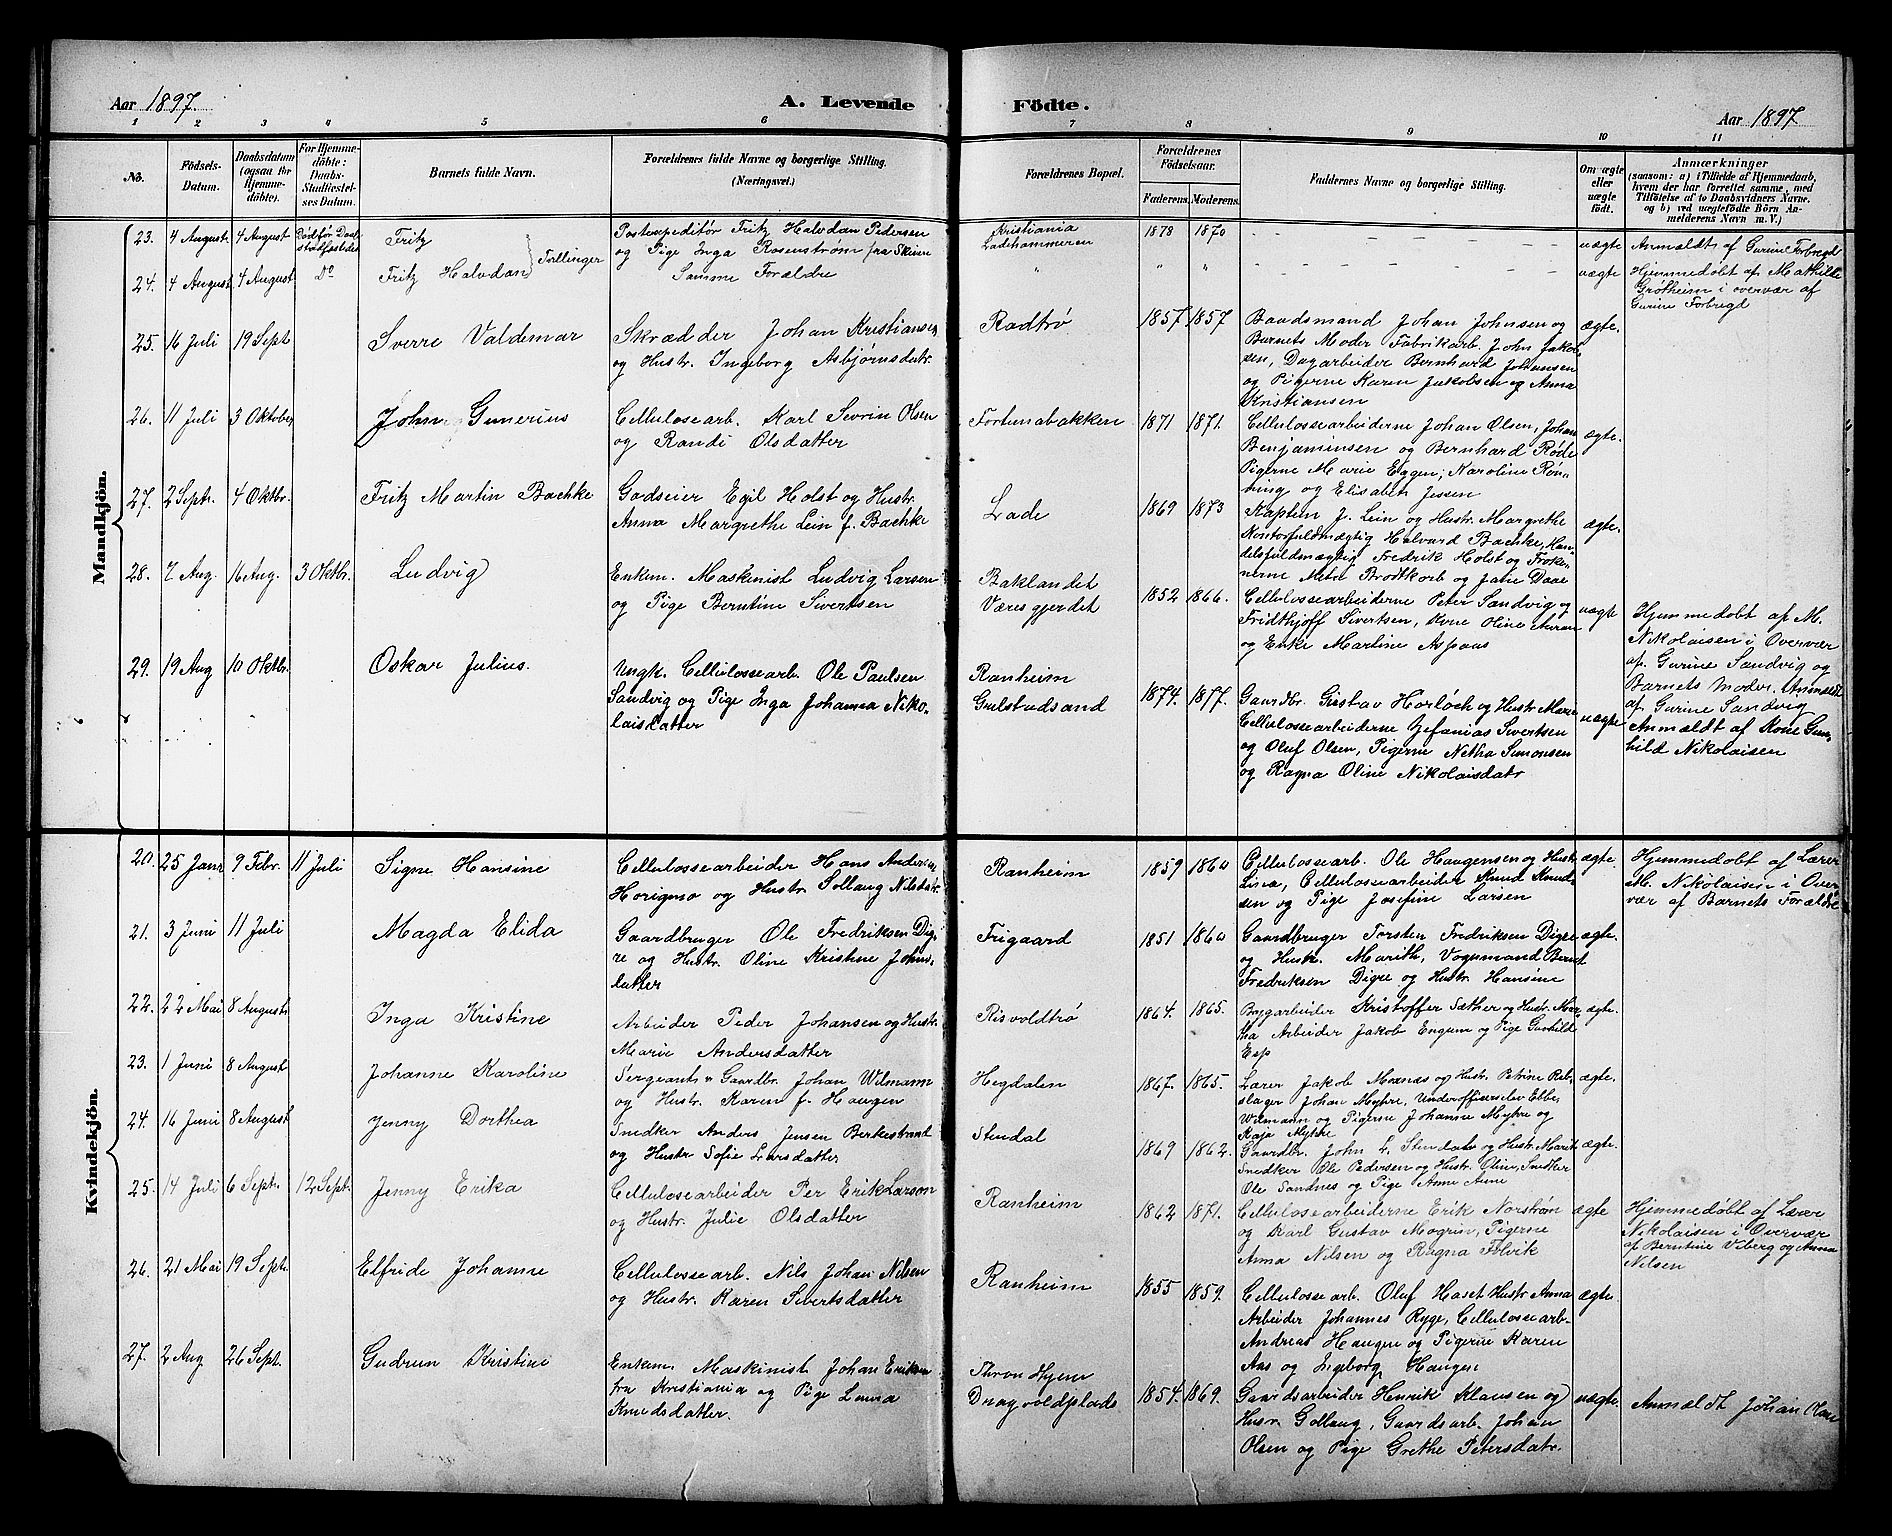 Aar 1897.
A. Levende
Födte.
Aar 1897
1 2 3 4 5 6 7 8 9 10 11
No.
Födsels-
Datum.
Daabsdatum
(ogsaa for
Hjemme-
döbte).
For Hjemme-
döbte:
Daabs-
Stadfæstel-
ses Datum.
Barnets fulde Navn.
Forældrenes fulde Navne og borgerlige Stilling.
(Næringsvei.)
Forældrenes Bopæl.
Forældrenes
Födselsaar.
Faderens. Moderens.
Faddernes Navne og borgerlige Stilling.
Om ægte
eller
uægte
födt.
Anmærkninger
(saasom: a) i Tilfælde af Hjemmedaab,
hvem der har forrettet samme, med
Tilföielse af to Daabsvidners Navne.
og b) ved uægtefödte Börn An-
melderens Navn m. V.)
Mandkjön.
23. 4 August. 4 August Död för Daab
stadfæstedes
Fritz
Tvillinger
Postexpeditør Fritz Halvdan Pedersen
og Pige Inga Rosenstrøm fra Skien
Kristiania
Ladehammeren
1878 1870
uægte
Anmældt af Gurine Forbregd
24. 4 August 4 August Do
Fritz Halvdan
Samme Forældre
" " "
uægte
Hjemmedøbt af Mathilde
Grøtheim i overvær af
Gurine Forbregd
25. 16 Juli 19 Sept
Sverre Valdemar
Skrædder Johan Kristiansen
og Hustr. Ingeborg Asbjørnsdatr.
Rodtrø
1857 1857
Baadsmand Johan Johnsen og
Barnets Moder Fabrikarb. John Jakob-
sen, Dagarbeider Bernhard Johansen
og Pigerne Karen Jakobsen og Anna
Kristiansen
ægte.
26. 11 Juli 3 Oktober
John Gunerius
Cellulosearb. Karl Sevrin Olsen
og Randi Olsdatter
Fortunabakken
1871 1871.
Cellulosearbeiderne Johan Olsen, Johan
Benjaminsen og Bernhard Røde
Pigerne Marie Eggen, Karoline Røn-
ning og Elisabet Jessen
ægte.
27. 2 Sept. 4 Oktbr.
Fritz Martin Bachke
Godseier Egil Holst og Hustr.
Anna Margrethe Lein f. Bachke
Lade
1869 1873
Kaptein J. Lein og Hustr. Margrethe
Kontorfuldmægtig Halvard Bachke, Han-
delsfuldmægtig Fredrik Holst og Frøke-
nerne Meta Brodtkorb og Jane Daae
ægte.
28. 7 Aug. 16 Aug. 3 Oktbr.
Ludvig
Enkem. Maskinist Ludvig Larsen
og Pige Berntine Sivertsen
Baklandet
Væresgjerdet
1852 1866.
Cellulosearbeiderne Peter Sandvig og
Fridthjoff Sivertsen, Kone Oline Auran
og Enke Martine Aspaas
uægte
Hjemmedøbt af M.
Nikolaisen i Overvær
af. Gurine Sandvig og
Barnets Moder. Anmeldt
af Gurine Sandvig
29. 19 Aug 10 Oktbr.
Oskar Julius.
Ungk. Cellulossearb. Ole Paulsen
Sandvig og Pige Inga Johanna Niko-
laisdatter
Ranheim
Grilstadsand
1874. 1877.
Gaardbr. Gustav Horløck og Hustr. Maren
Cellulossearbeiderne Zefanias Sivertsen
og Oluf Olsen, Pigerne Netha Simonsen
og Ragna Oline Nikolaisdatr
uægte
Anmældt af Kone Gun-
hild Nikolaisen
Kvindekjön.
20. 25 Janr 9 Febr. 11 Juli
Signe Hansine
Cellulossearbeider Hans Anders
Horigmo og Hustr. Sollaug Nilsdtr.
Ranheim
1859 1860
Cellulossearb. Ole Haugensen og Hustr.
Lina, Cellulossearbeider Knud Knud-
sen og Pige Josefine Larsen
ægte.
Hjemmedøbt af Lærer
M. Nikolaisen i Over-
vær af Barnets Forældre
21. 3 Juni 11 Juli
Magda Elida
Gaardbruger Ole Fredriksen Dig-
re og Hustr. Oline Kristine Johns-
datter
Frigaard
1851 1860
Gaardbruger Torsten Fredriksen Digre
og Hustr. Marith, Vognmand Bernt
Fredriksen Digre og Hustr. Hansine
ægte.
22. 22 Mai 8 August
Inga Kristine
Arbeider Peder Johansen og Hustr.
Marie Andersdatter
Risvoldtrø
1864. 1865.
Bygarbeider Kristoffer Sæther og Hustr. Mar-
tha Arbeider Jakob Engum og Pige Gunhild
Esp
ægte.
23. 1 Juni 8 August
Johanne Karoline
Sergeant & Gaardbr. Johan Wilmann
og Hustr. Karen f. Haugen
Hegdalen
1867. 1865.
Lærer Jakob Moxnæs og Hustr. Petrine Reb-
slager Johan Myhre, Underofficerselev Ebbe
Wilmann og Pigerne Johanne Myhre og
Kaja Myhre
ægte.
24. 16 Juni 8 August
Jenny Dorthea
Snedker Anders Jensen Berkestrand
og Hustr Sofie Larsdatter
Stendal
1869 1862.
Gaardbr. John L. Stendal og Hustr. Marit
Snedker Ole Pedersen og Hustr. Oline, Snedker
Ole Sandnes og Pige Anne Aune
ægte.
25. 14 Juli 6 Sept. 12 Sept.
Jenny Erika
Cellulosearbeider Per Erik Larson
og Hustr. Julie Olsdatter
Ranheim
1862 1871.
Cellulosearbeiderne Erik Norstrøm
og Karl Gustav Mogrin, Pigerne
Anna Nilsen og Ragna Folvik
ægte
Hjemmedøbt af Lærer
Nikolaisen i Overvær
af Berntine Viberg og Anna
Nilsen
26. 21 Mai 19 Sept.
Elfride Johanne
Cellulossearb. Nils Johan Nilsen
og Hustr. Karen Sivertsdatter
Ranheim
1855 1859.
Cellulosse arb. Oluf Haset Hustr. Anna
Arbeider Johannes Ryge, Cellulossearb-
Andreas Haugen og Pigerne Karen
Aas og Ingeborg Haugen.
ægte.
27. 2 Aug 26 Sept.
Gudrun Kristine
Enkem. Maskinist Johan Eriksen
fra Kristiania og Pige Laura
Knudsdatter.
Thronhjem
Dragvoldplads
1854. 1869.
Gaardsarbeider Henrik Klausen og
Hustr. Gollaug, Gaardsarb. Johan
Olsen og Pige Grethe Petersdatr.
uægte.
Anmældt Johan Olsen